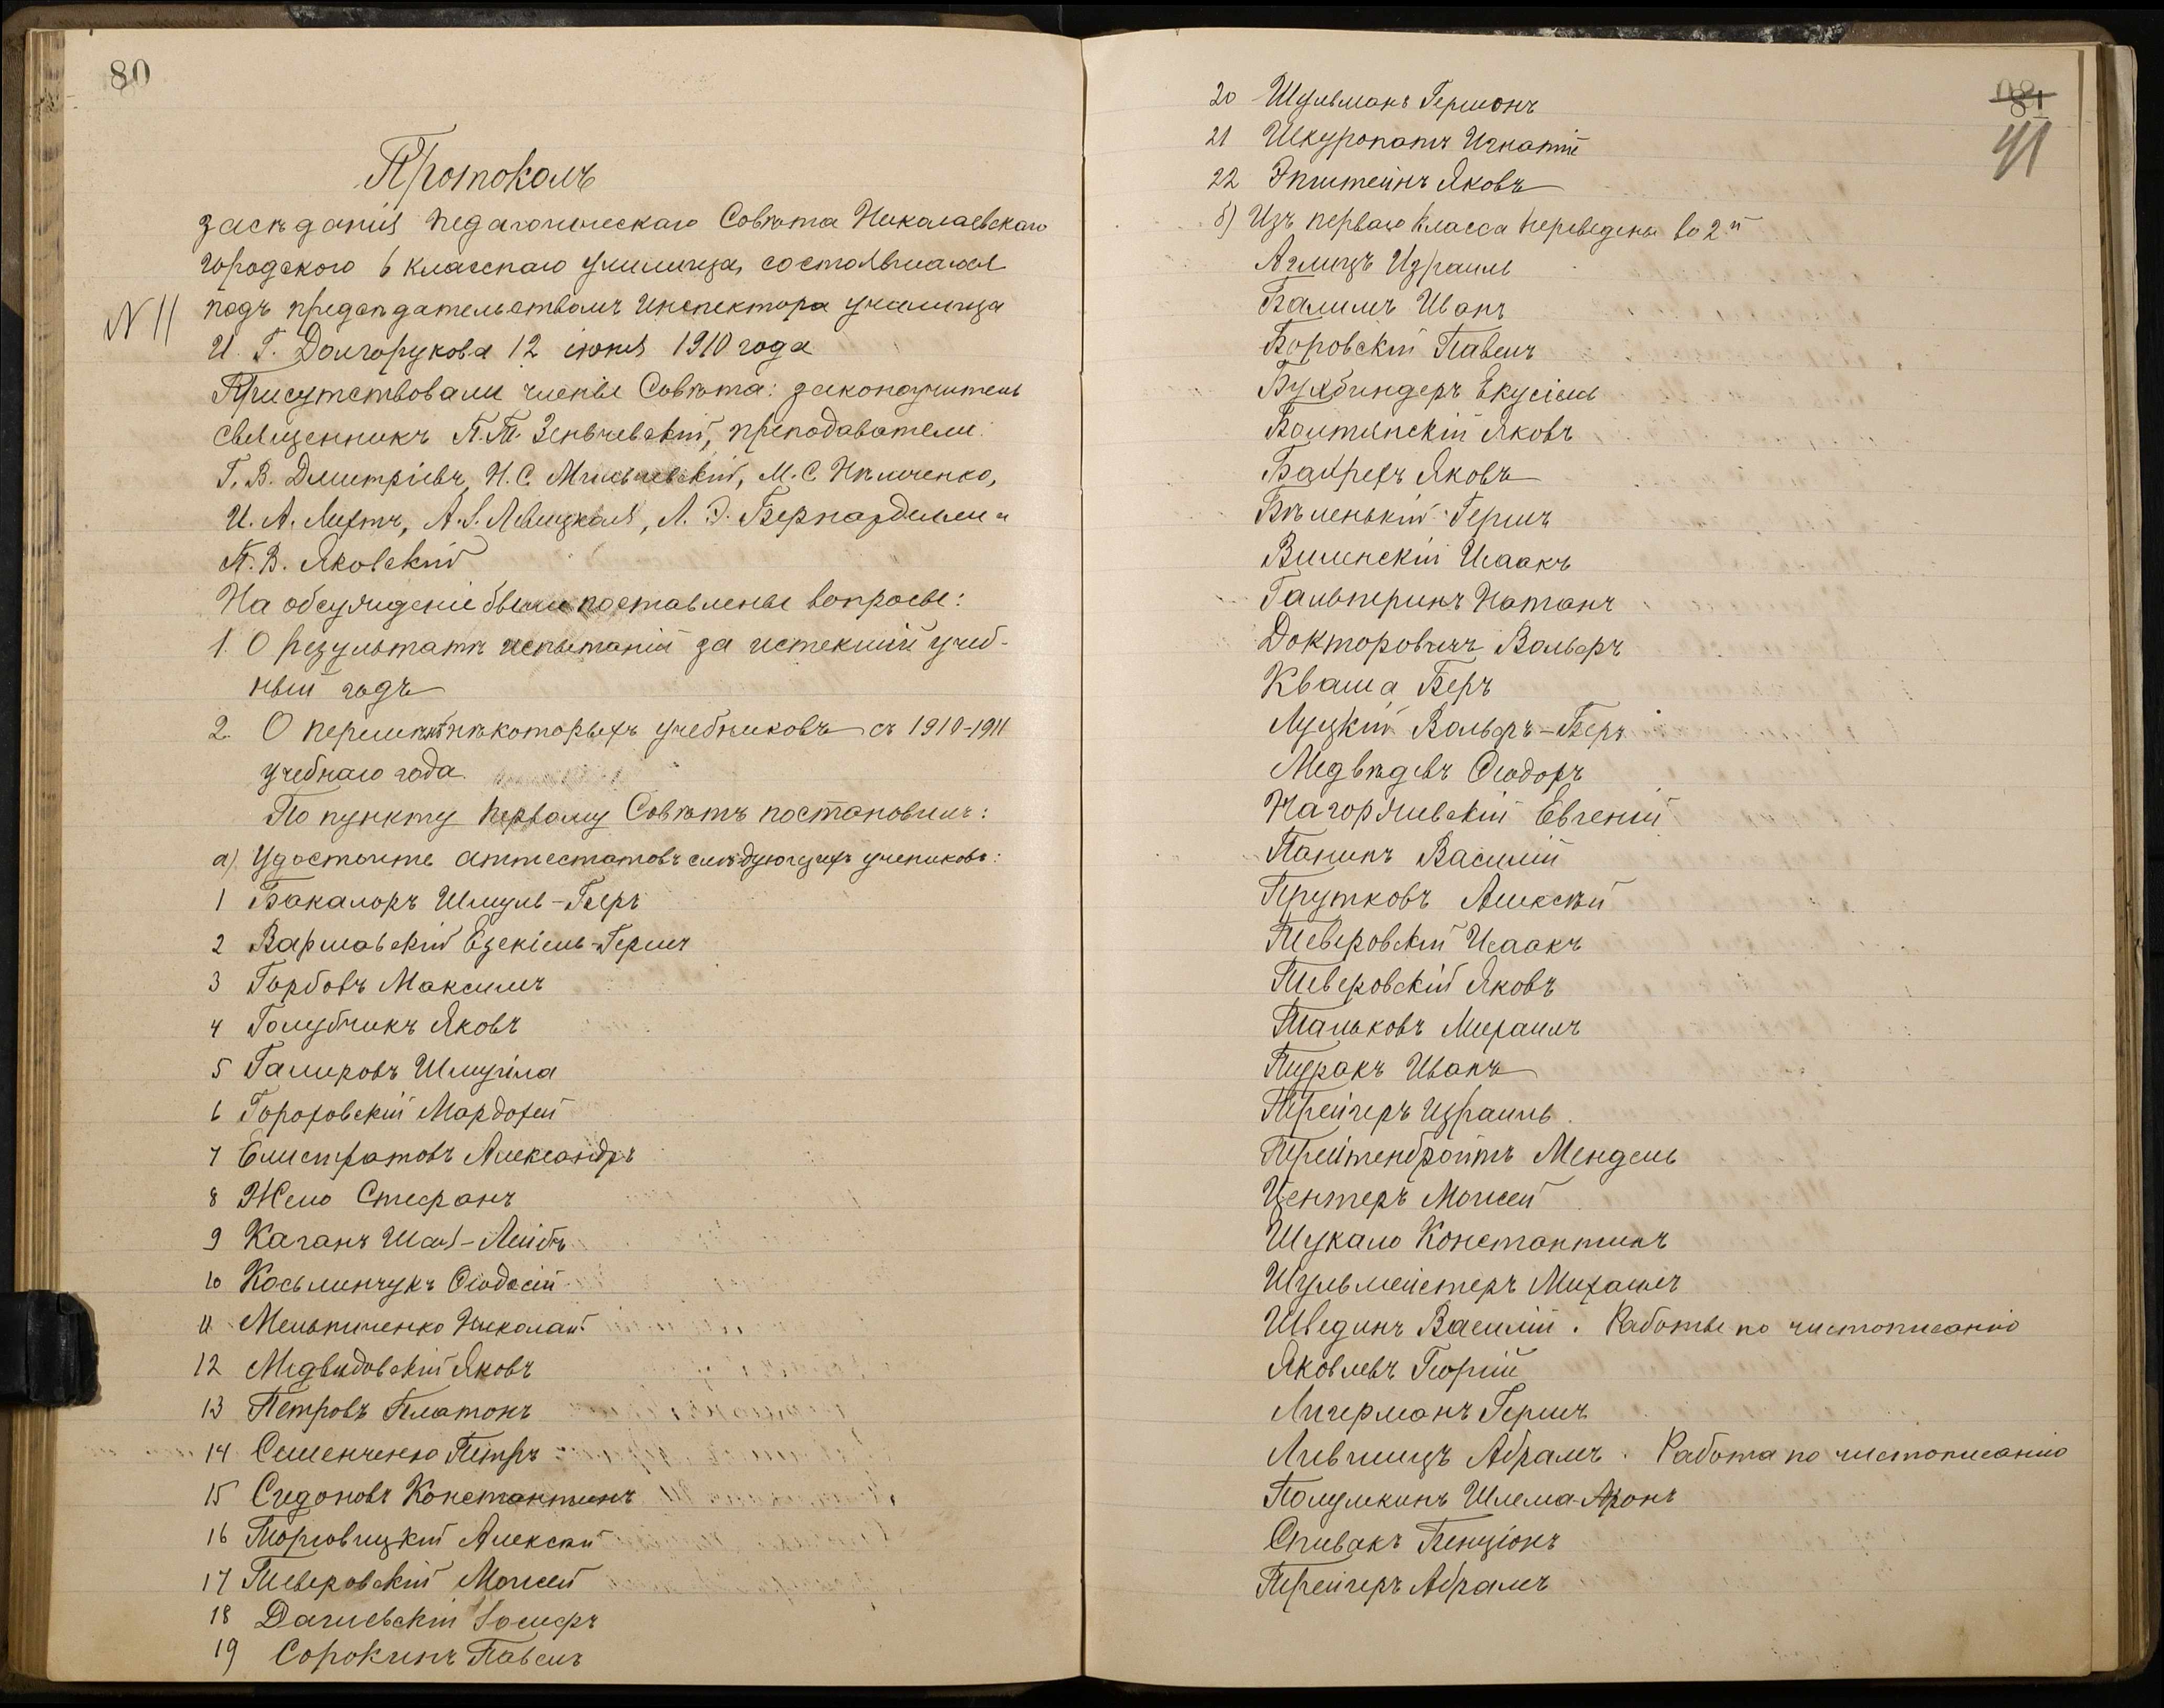 80
Протоколъ
засѣданія педагогическаго Совѣта Николаевскаго
городского 6 класснаго училища, состоявшагося
№ 11
подъ предсѣдательствомъ Инспектора училища
И. Г. Долгорукова 12 іюня 1910 года
Присутствовали члены Совѣта: законоучитель
священникъ П. Т. Зеньчевскій, преподаватели:
Г. В. Дмитріевъ, Н. С. М. С. Нѣмченко,
И. А. Лихтъ, А. І. Левицкая, Л. Э. Бернарделли и
П. В. Яковскій
На обсужденіе были поставлены вопросы:
1. О результатѣ испытаній за истекшій учеб-
ный годъ
2. О перемѣнѣ нѣкоторыхъ учебниковъ съ 1910-1911
учебнаго года.
По пункту первому Совѣтъ постановилъ:
а) Удостоить аттестатовъ слѣдующихъ учениковъ:
1 Бакалоръ Шмуль-Беръ
2 Варшавскій Езекіель-Гершъ
3 Горбовъ Максимъ
4 Голубчикъ Яковъ
5 Шмуила
6 Гороховскій Мардохей
7 Елистратовъ Александръ
8 Жело Стефанъ
9 Каганъ Лейбъ
10 Косьминчукъ Ѳеодосій
11 Мельниченко Николай
12 Медвѣдовскій Яковъ
13 Петровъ Платонъ
14 Семенченко Петръ
15 Сидоновъ Константинъ
16 Торговицкій Алексѣй
17 Тверовскій Моисей
18 Дагневскій Іосифъ
19 Сорокинъ Павелъ
81
41
20 Шульманъ Гершонъ
21 Шкуропатъ Игнатій
22 Эпштейнъ Яковъ
б) Изъ перваго класса переведены во 2й
Аглицъ Израиль
Балимъ Иванъ
Боровскій Павелъ
Бухбиндеръ Екусіель
Болтянскій Яковъ
Бахрехъ Яковъ
Бѣленькій Гершъ
Виленскій Исаакъ
Гальперинъ Натанъ
Докторовичъ Вольфъ
Кваша Беръ
Луцкій Вольфъ-Беръ
Медвѣдевъ Ѳеодоръ
Нагоржевскій Евгеній
Панинъ Василій
Прутковъ Алексѣй
Тверовскій Исаакъ
Тверовскій Яковъ
Таньковъ Михаилъ
Иванъ
Трейгеръ Израиль
Трейтенбройтъ Мендель
Центеръ Моисей
Шукало Константинъ
Шульмейстеръ Михаилъ
Шведикъ Василій. Работы по чистописанію
Яковлевъ Георгій
Лигерманъ Гершъ
Лившицъ Абрамъ. Работа по чистописанію
Полумкинъ Шлема-Аронъ
Спивакъ Бенціонъ
Трейгеръ Абрамъ